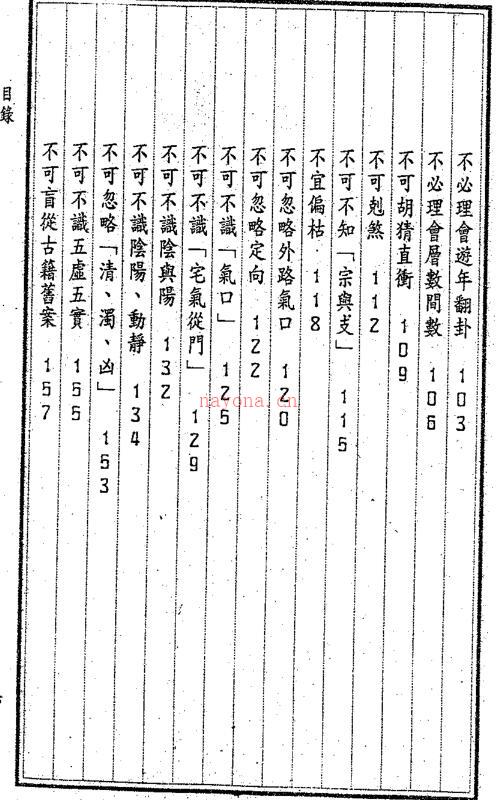 不必理會遊年翻卦 103
不必理會層數間數 106
不可胡猜直衝 109
不可剋煞 112
不可不知「宗與支」 115
不宜偏枯 118
不可忽略外路氣口 120
不可忽略定向 122
不可不識「氣口」 125
不可不識「宅氣從門」 129
不可不識陰與陽 132
不可不識陰陽、動靜 134
不可忽略「清、濁、凶」 153
不可不識五虛五實 155
不可盲從古籍舊案 157
目錄
nayona.cn